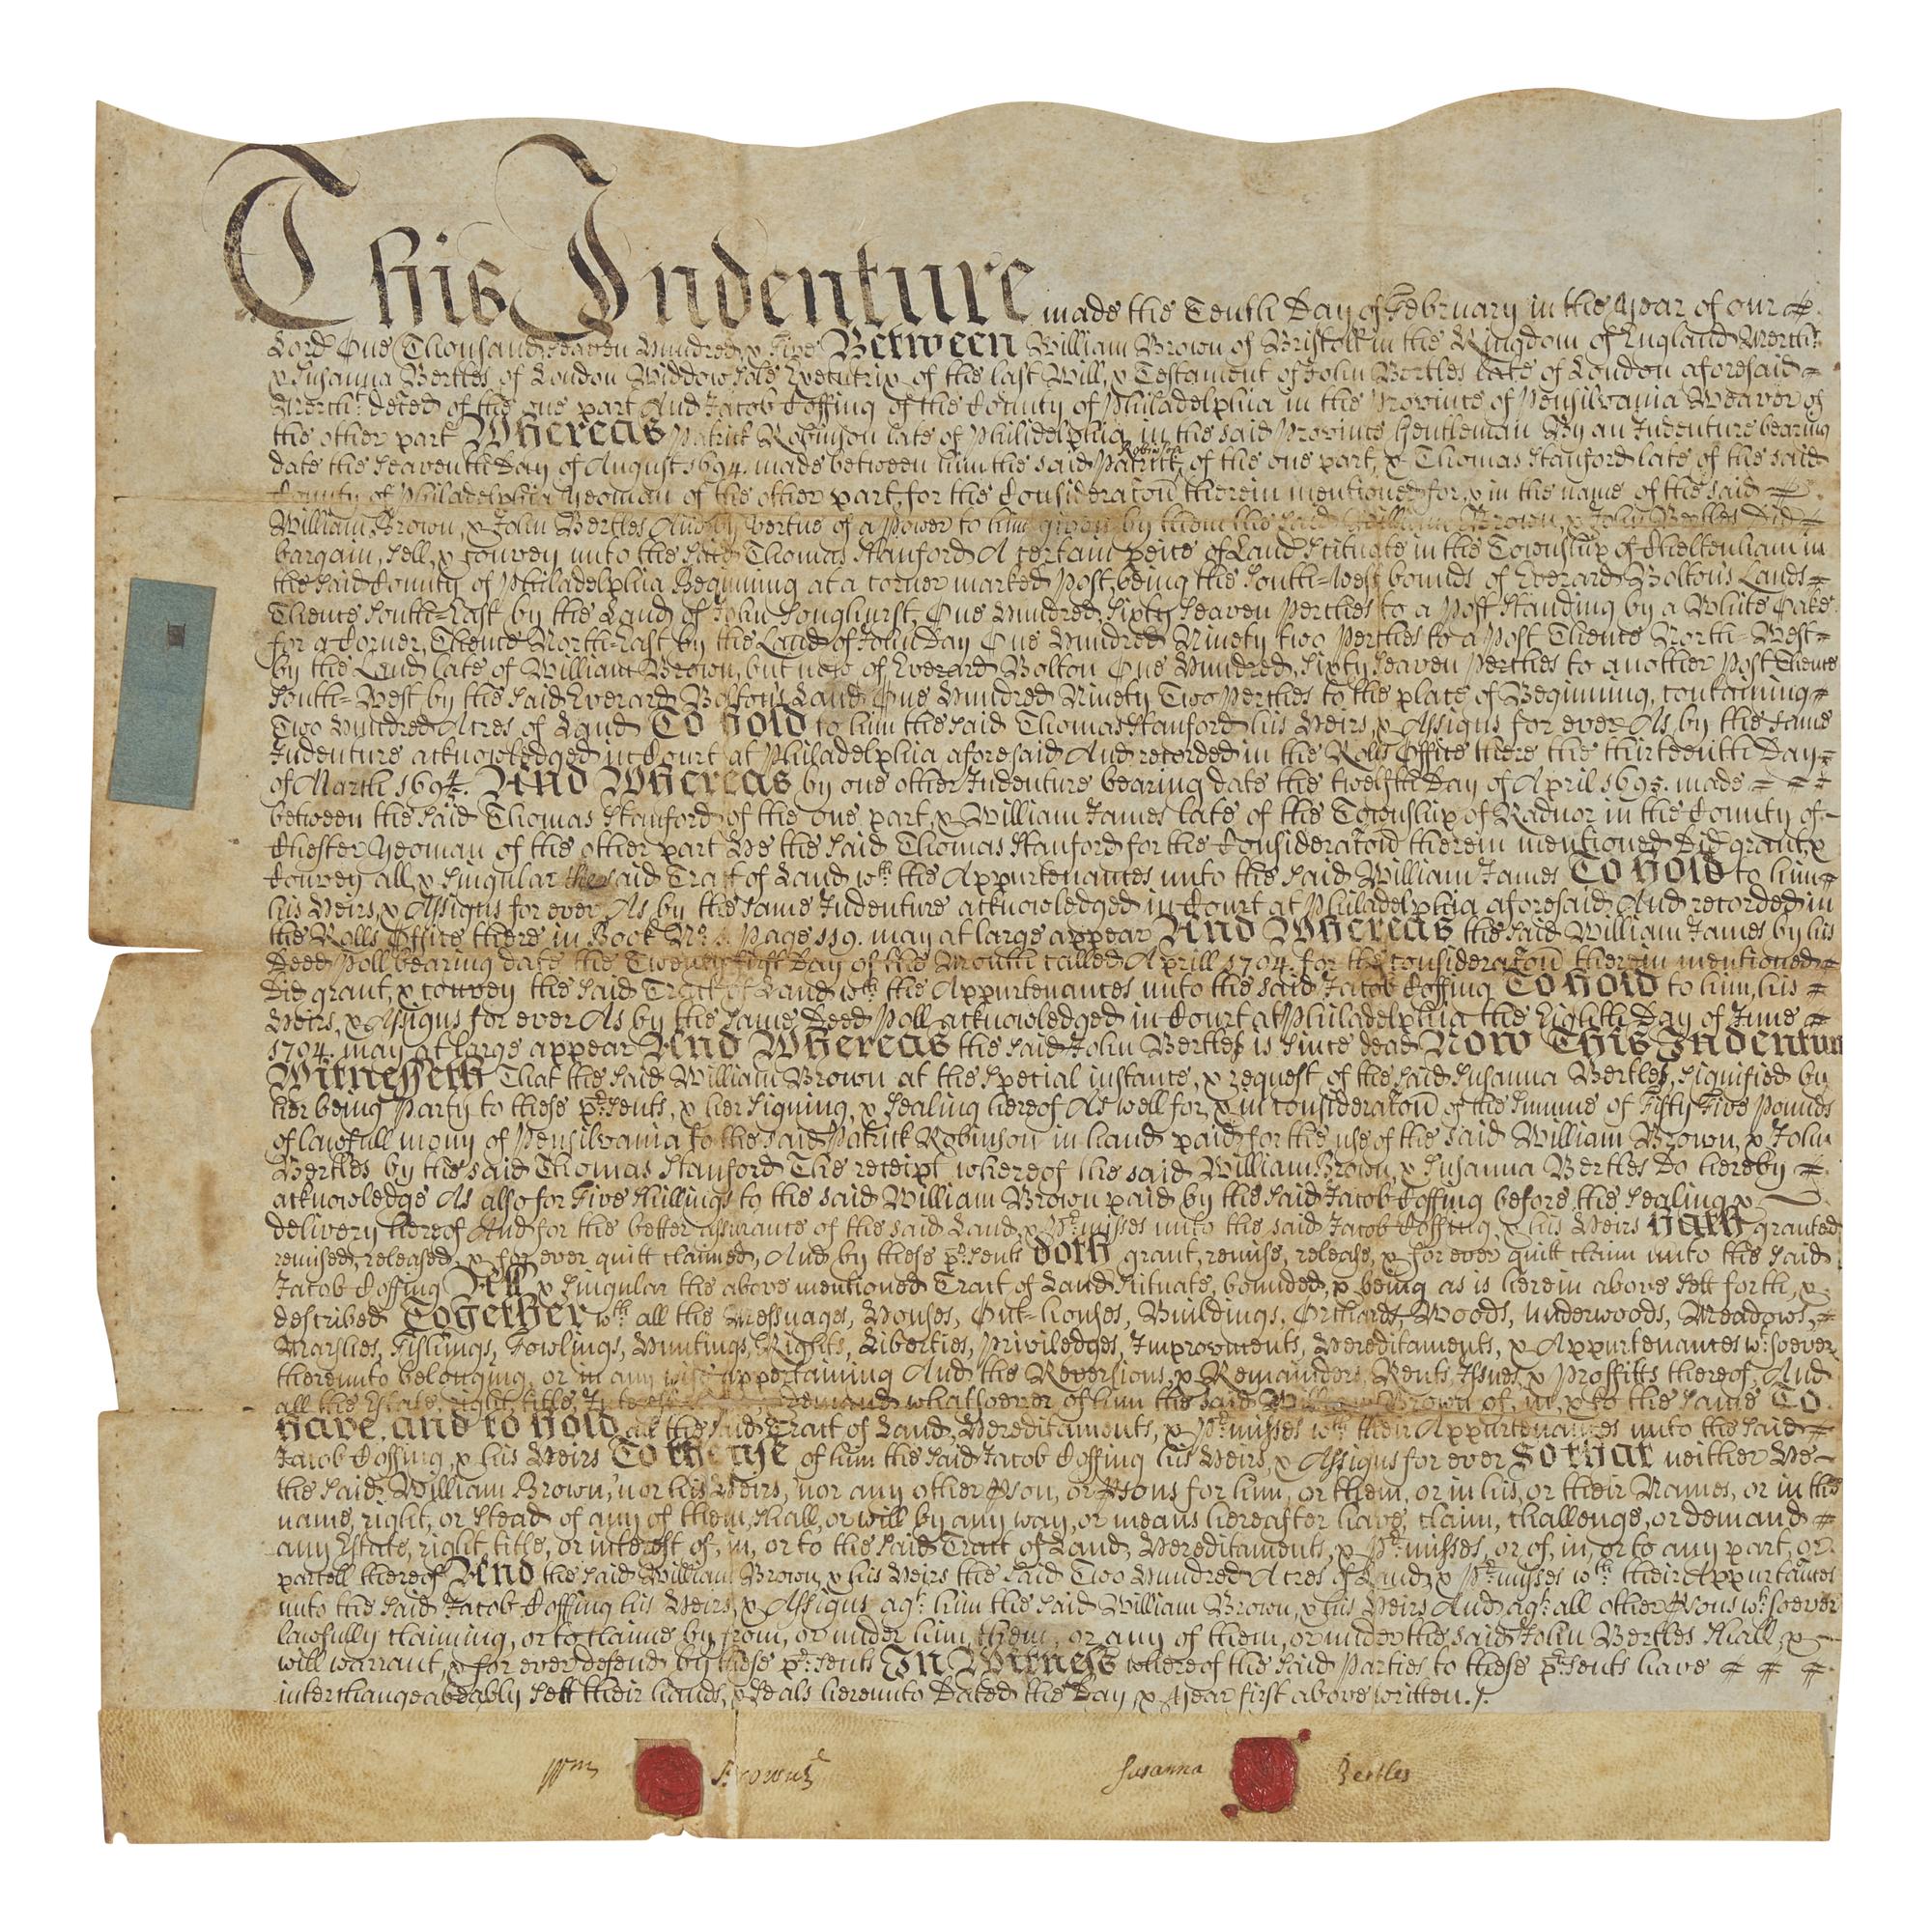 This Indenture made the Tenth Day of February in the Year of our
Lord One Thousand Seaven Hundred & Five Between William Brown of Bristoll in the Kingdom of England Mercht
& Susanna Bertles of London Widdow Sole Executrix of the last Will & Testament of John Bertles late of London aforesaid
Mercht deced of the one part And Jacob Coffing of the County of Philadelphia in the Province of Pensilvania Weaver of
the other part Whereas Patrick Robinson late of Philidelphia in the said Province Gentleman By an Indenture bearing
date the Seaventh Day of August 1694. made between him the said Patrick Robinson of the one part, & Thomas Stanford late of the said
County of Philadelphia Yeoman of the other part, for the Consideraton therein mentioned for, & in the name of the said
William Brown, & John Bertles And by vertue of a Power to him given by them the said William Brown, & John Bertles Did
bargain, Sell, & convey unto the said Thomas Stanford A certain peice of Land Scituate in the Township of Cheltenham in
the said County of Philadelphia Beginning at a corner marked Post, being the South-West bounds of Everard Bolton's Lands
Thence South-East by the Land of John Songhurst, One Hundred Sixty Seaven Perches to a Post standing by a White Oake
for a Corner, Thence North-East by the Land of John Day One Hundred Ninety two Perches to a Post Thence North-West
by the Land late of William Brown, but now of Everard Bolton One Hundred Sixty Seaven Perches to another Post Thence
South-West by the said Everard Bolton's Land One Hundred Ninety Two Perches to the place of Beginning, containing
Two Hundred Acres of Land To hold to him the said Thomas Stanford his Heirs, & Assigns for ever As by the same
Indenture acknowledged in Court at Philadelphia aforesaid And recorded in the Rolls Office there the thirteenth Day
of March 1694/5. And Whereas by one other Indenture bearing date the twelfth Day of April 1695. made
between the said Thomas Stanford of the one part, & William James late of the Township of Radnor in the County of
Chester Yeoman of the other part He the said Thomas Stanford for the Consideraton therein mentioned Did grant, &
Convey all, & Singular the said Tract of Land wth the Appurtenances unto the said William James To hold to him
his Heirs, & Assigns for ever As by the same Indenture acknowledged in Court at Philadelphia aforesaid And recorded in
the Rolls Office there in Book No Page 119. may at large appear And Whereas the said William James by his
Deed Poll bearing date the Twenty first Day of the Month called Aprill 1704. for the consideraton therein mentioned
Did grant, & convey the said Tract of Land wth the Appurtenances unto the said Jacob Coffing To hold to him, his
Heirs, & Assigns for ever As by the same Deed Poll acknowledged in Court at Philadelphia the Eighth Day of June
1704. may at large appear And Whereas the said John Bertles is since dead Now This Indenture
Witnesseth That the said William Brown at the special instance, & request of the said Susanna Bertles, signified by
her being Party to these prsents, & her signing, & sealing hereof As well for, & in consideraton of the Summe of Fifty Five Pounds
of lawfull mony of Pensilvania to the said Patrick Robinson in hand paid for the use of the said William Brown, & John
Bertles by the said Thomas Stanford The receipt whereof the said William Brown, & Susanna Bertles Do hereby
acknowledge As also for Five Shillings to the said William Brown paid by the said Jacob Coffing before the sealing &
delivery hereof And for the better assurance of the said Land, & Prmisses unto the said Jacob Coffing, & his Heirs Hath granted
remised, released, & for ever quitt claimed, And by these prsents doth grant, remise, release, & for ever quitt claim unto the said
Jacob Coffing All & Singular the above mentioned Tract of Land Situate, bounded, & being as is herein above sett forth, &
described Together wth all the Messuages, Houses, Out-houses, Buildings, Orchards, Woods, Underwoods, Meadows,
Marshes, Fishings, Fowlings, Huntings, Rights, Liberties, Priviledges, Improvments, Hereditaments, & Appurtenances wtsoever
thereunto belonging, or in any wise appertaining And the Reversions, & Remainders, Rents, Issues, & Proffitts thereof, And
all the Estate, right, title, Interest demand whatsoever of him the said William Brown of, in, & to the same To
Have, and to hold all the said Tract of Land, Hereditaments, & Prmisses wth their Appurtenances unto the said
Jacob Coffing, & his Heirs To the use of him the said Jacob Coffing his Heirs, & Assigns for ever So that neither He
the said William Brown, nor his Heirs, nor any other pson, or psons for him, or them, or in his, or their Names, or in the
name, right, or stead of any of them, shall, or will by any way, or means hereafter have, claim, challenge, or demand
any Estate, right, title, or interest of, in, or to the said Tract of Land, Hereditaments, & Prmisses, or of, in, or to any part, or
parcell thereof And the said William Brown, & his Heirs the said Two Hundred Acres of Land, & Prmisses wth their Appurtances
unto the said Jacob Coffing his Heirs, & Assigns agt him the said William Brown, & his Heirs And agt all other psons wtsoever
lawfully claiming, or to claime by, from, or under him, them, or any of them, or under the said John Bertles shall, &
will warrant, & for ever defend by these prsents In Witness whereof the said Parties to these prsents have
interchangeabeably sett their hands, & seals hereunto Dated the Day, & Year first above written.
Wm Brown Susanna Bertles